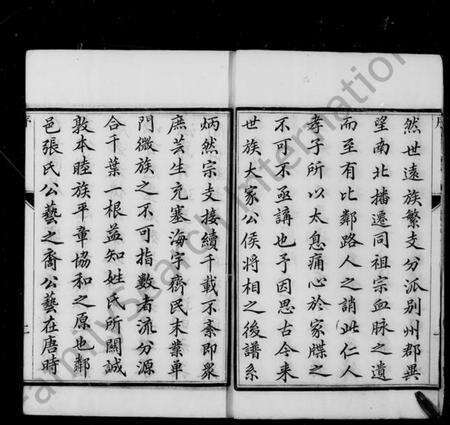 序
然世遠族繁支分派别州郡異
望南北播遷同祖宗血脉之遺
而至有比鄰路人之誚此仁人
孝子所以太息痛心於家牒之
不可不亟講也予因思古今来
世族大家公侯將相之後譜系
炳然宗支接續千載不紊即衆
庶芸生充塞海宇齊民末業單
門微族之不可指數者流分源
合千葉一根益知姓氏所關誠
敦本睦族平章協和之原也鄰
邑張氏公藝之裔公藝在唐時
序
二
FamilySearch International